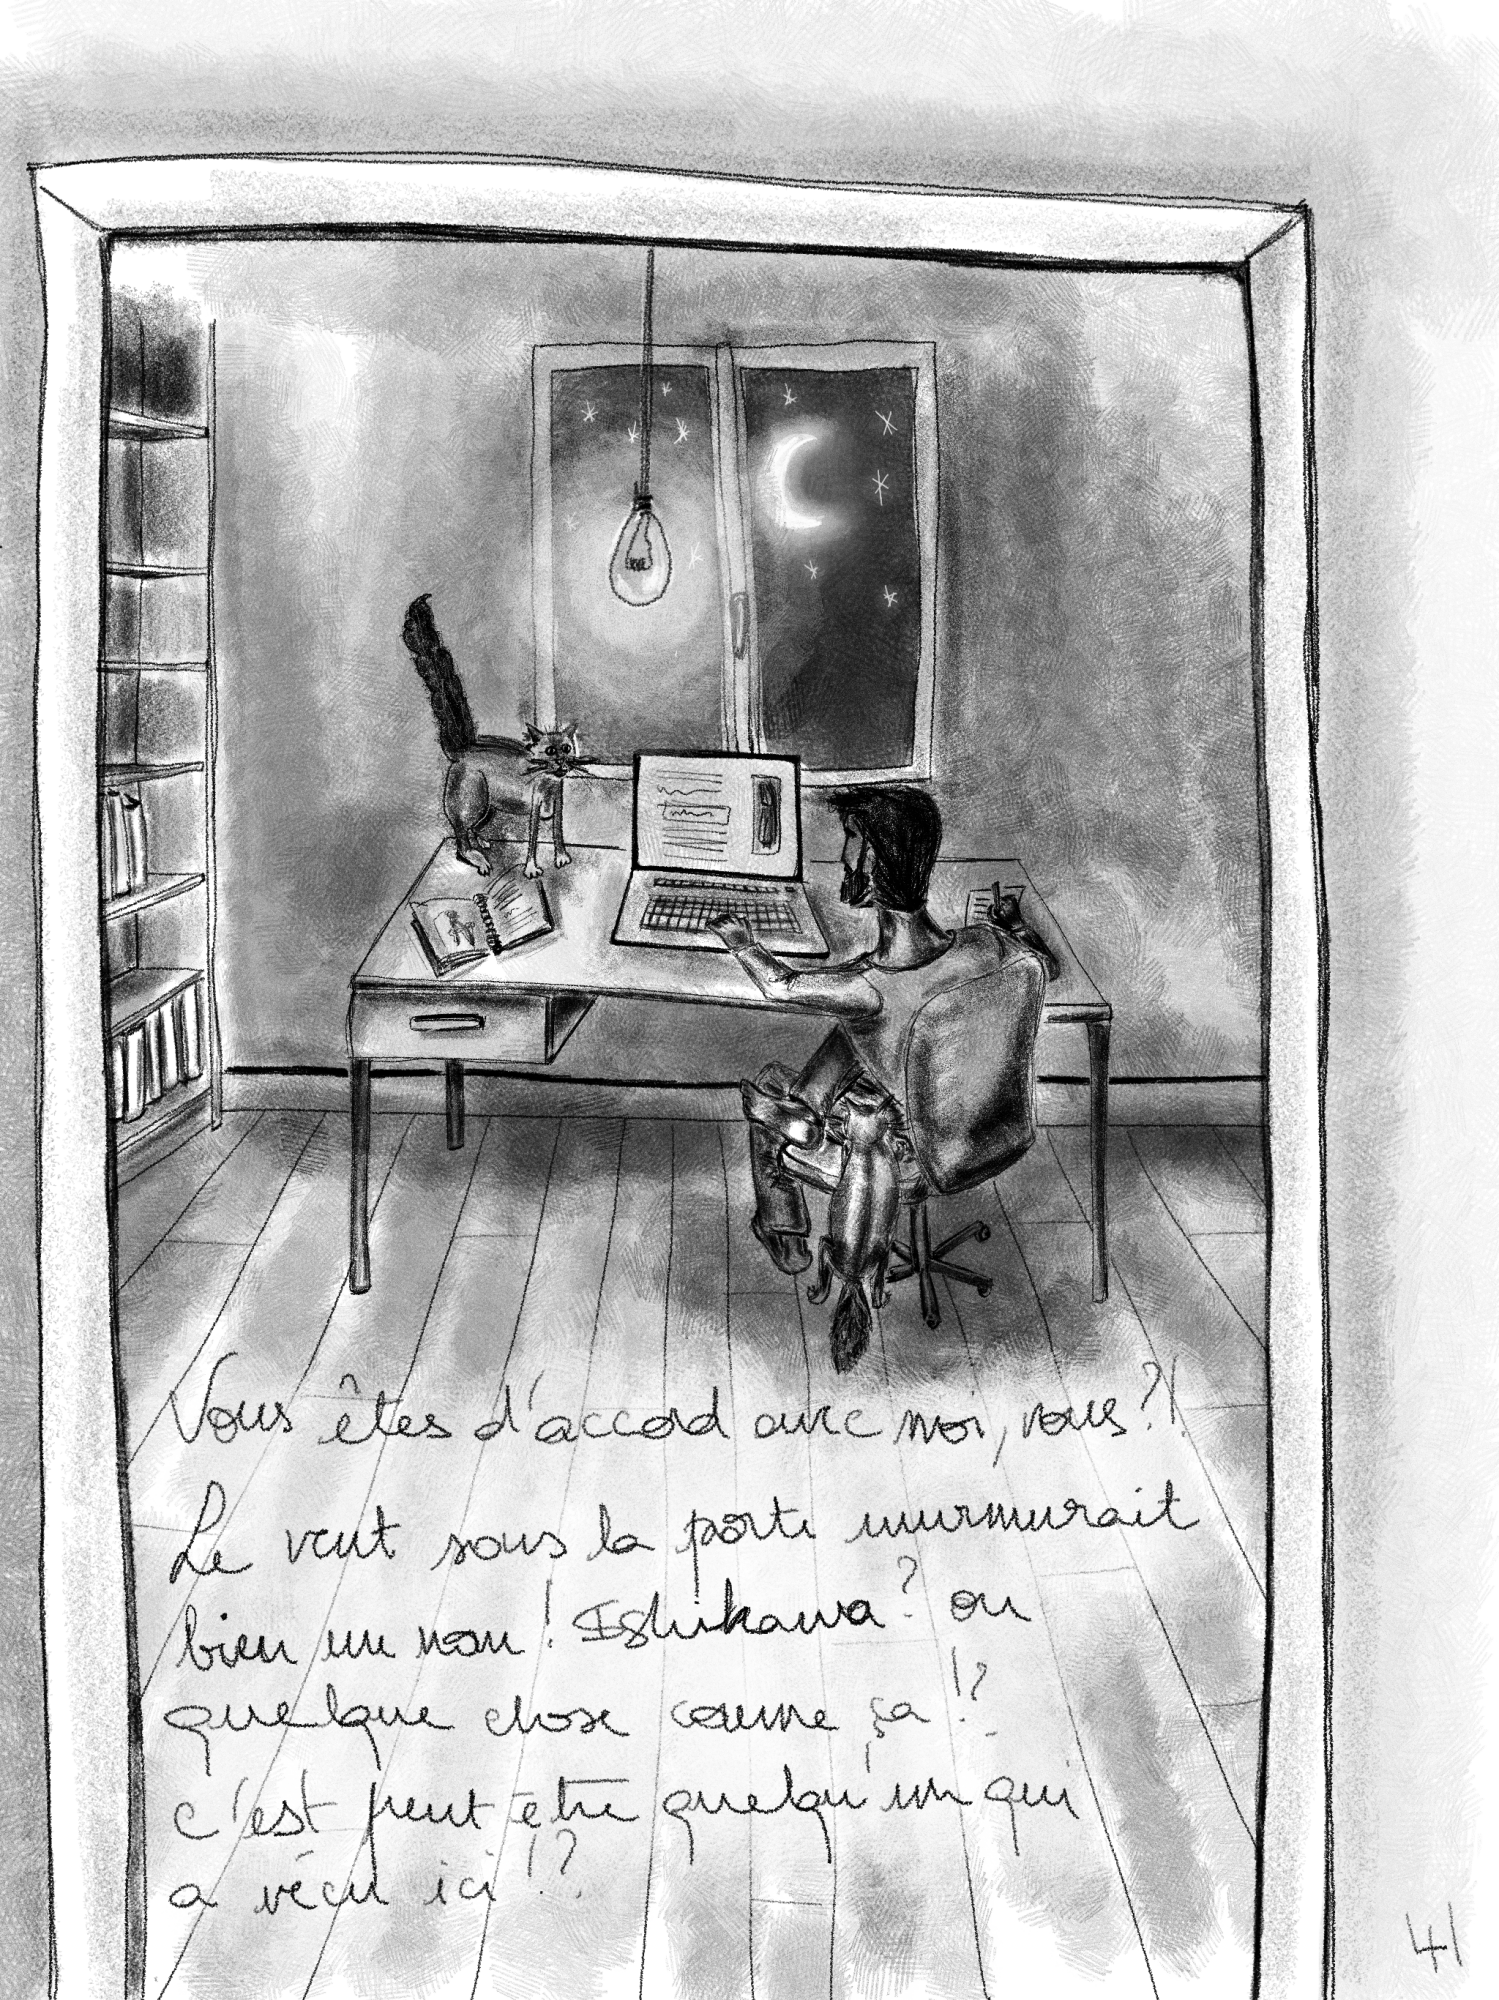 Vous êtes d'accord avec moi, vous ?!
Le vent sous la porte murmurait
bien un nom ! Ishikawa ? ou
quelque chose comme ça !?
c'est peut etre quelqu'un qui
a vécu ici !?
41